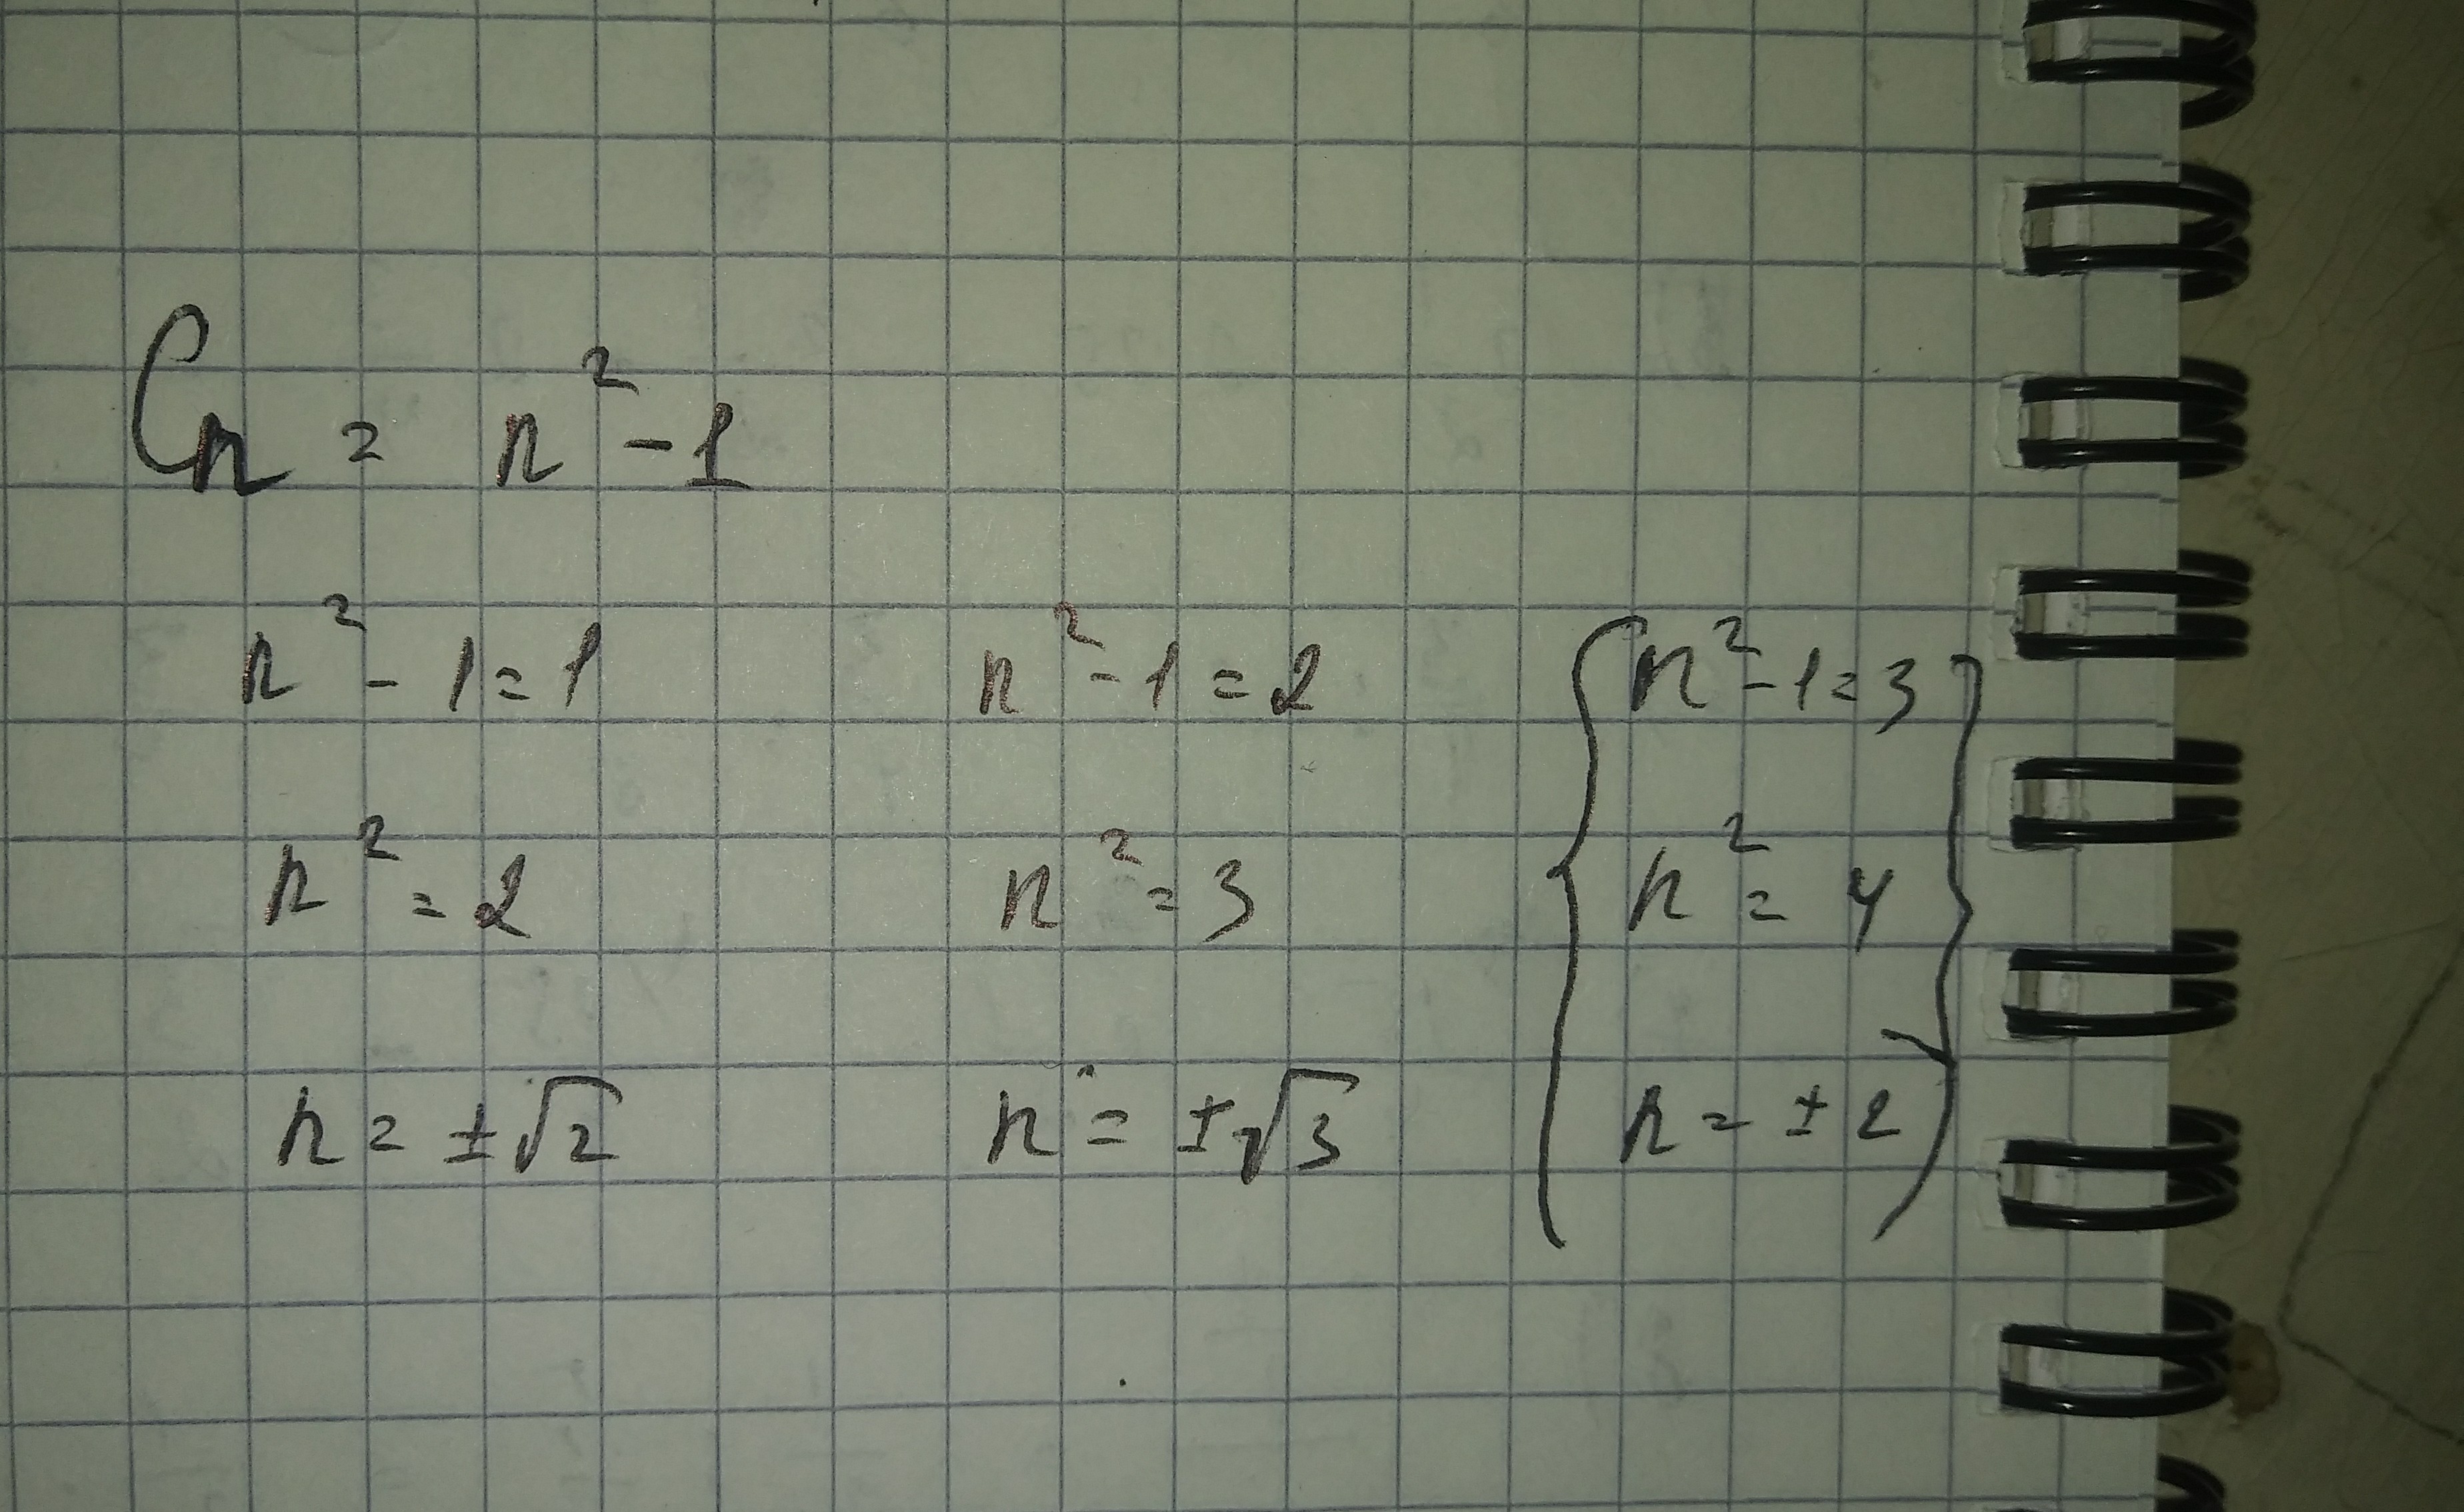 Cn = n² - 1
n² - 1 = 1
n² = 2
n = ±√2
n² - 1 = 2
n² = 3
n = ±√3
{ n² - 1 = 3 }
n² = 4
n = ±2